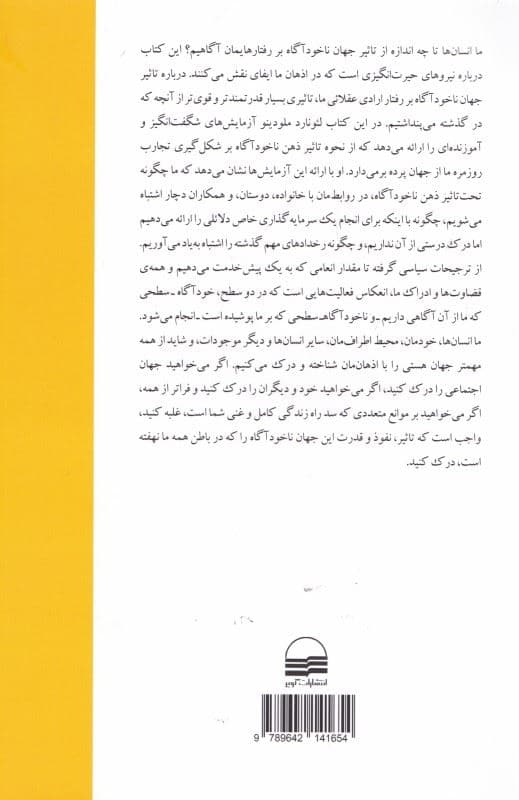 ما انسان‌ها تا چه اندازه از تاثیر جهان ناخودآگاه بر رفتارهایمان آگاهیم؟ این کتاب
درباره نیروهای حیرت‌انگیزی است که در اذهان ما ایفای نقش می‌کنند. درباره تاثیر
جهان ناخودآگاه بر رفتار ارادی عقلائی ما، تاثیری بسیار قدرتمندتر و قوی‌تر از آنچه که
در گذشته می‌پنداشتیم. در این کتاب لئونارد ملودینو آزمایش‌های شگفت‌انگیز و
آموزنده‌ای را ارائه می‌دهد که از نحوه تاثیر ذهن ناخودآگاه بر شکل‌گیری تجارب
روزمره ما از جهان پرده برمی‌دارد. او با ارائه این آزمایش‌ها نشان می‌دهد که ما چگونه
تحت‌تاثیر ذهن ناخودآگاه، در روابط‌مان با خانواده، دوستان، و همکاران دچار اشتباه
می‌شویم، چگونه با اینکه برای انجام یک سرمایه‌گذاری خاص دلائلی را ارائه می‌دهیم
اما درک درستی از آن نداریم، و چگونه رخدادهای مهم گذشته را اشتباه به‌یاد می‌آوریم.
از ترجیحات سیاسی گرفته تا مقدار انعامی که به یک پیش‌خدمت می‌دهیم و همه‌ی
قضاوت‌ها و ادراک ما، انعکاس فعالیت‌هایی است که در دو سطح، خودآگاه ـ سطحی
که ما از آن آگاهی داریم ـ و ناخودآگاه‌ـ سطحی که بر ما پوشیده است ـ انجام می‌شود.
ما انسان‌ها، خودمان، محیط اطراف‌مان، سایر انسان‌ها و دیگر موجودات، و شاید از همه
مهمتر جهان هستی را با اذهان‌مان شناخته و درک می‌کنیم. اگر می‌خواهید جهان
اجتماعی را درک کنید، اگر می‌خواهید خود و دیگران را درک کنید و فراتر از همه،
اگر می‌خواهید بر موانع متعددی که سد راه زندگی کامل و غنی شما است، غلبه کنید،
واجب است که تاثیر، نفوذ و قدرت این جهان ناخودآگاه را که در باطن همه ما نهفته
است، درک کنید.
انتشارات کویر
9 789642 141654